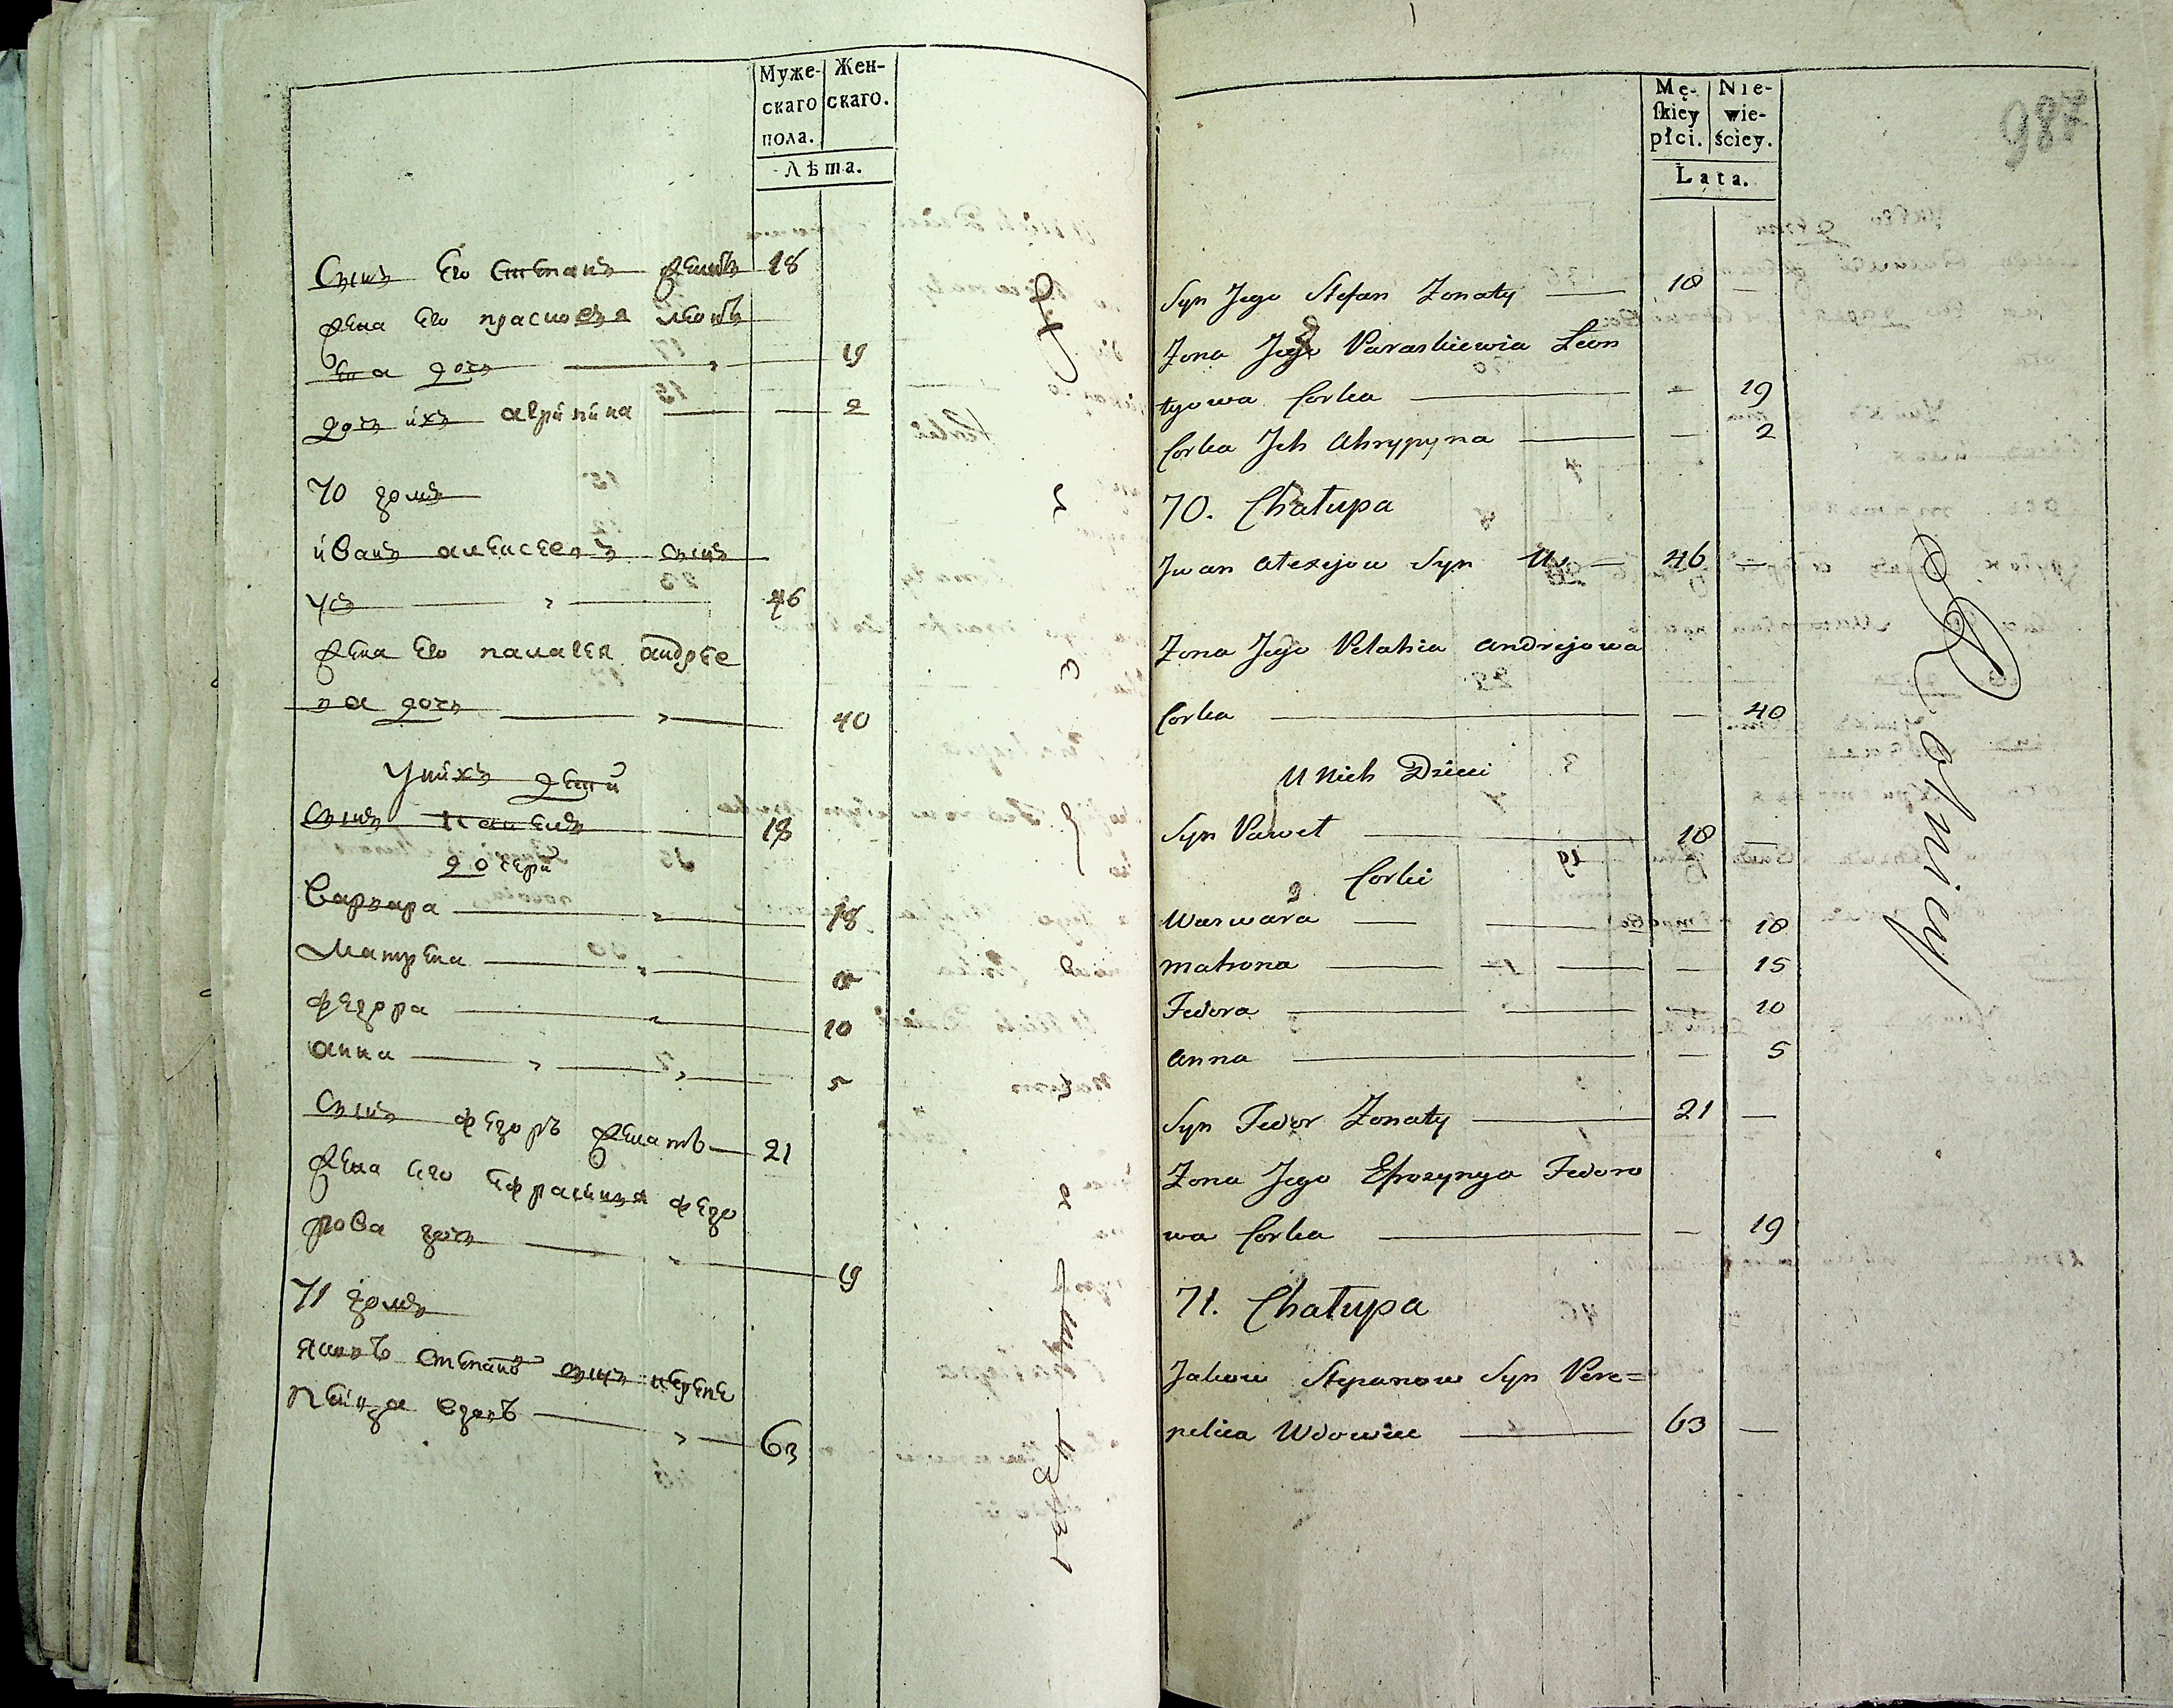 Муже-
скаго
пола.
Жен-
скаго.
Лѣта.
Сынъ Его Степанъ женатъ 18
жена Его прасковея леонтъ
ева дочъ 19
дочъ ихъ агрипина 2
70 домъ
иванъ алексеевъ сынъ
усъ 46
жена Его палагея андрее
ва дочъ 40
У нихъ дети
Сынъ павелъ 18
дочери
Варвара 18
Матрена 15
федора 10
анна 5
Сынъ федоръ женатъ 21
жена Его ефрасиния федо
рова дочъ 19
71 домъ
яковъ степановъ сынъ перепе
лица вдовъ 63
987
Mę-
ſkiey
płci.
Nie-
wie-
ściey.
Lata.
Syn Jego Stefan Zonaty — 18 —
Zona Jego Paraskiewia Leon
tyowa Corka — — 19
Corka Jch Ahrypyna — — 2
70. Chałupa
Jwan Alexijow Syn Us — 46 —
Zona Jego Pelahia Andrejowa
Corka — — 40
U Nich Dzieci
Syn Paweł — 18 —
Corki
Warwara — — 18
Matrona — — 15
Fedora — — 10
Anna — — 5
Syn Fedor Zonaty — 21 —
Zona Jego Efrozynya Fedoro
wa Corka — — 19
71. Chałupa
Jakow Stepanow Syn Pere=
pelica Wdowiec — 63 —